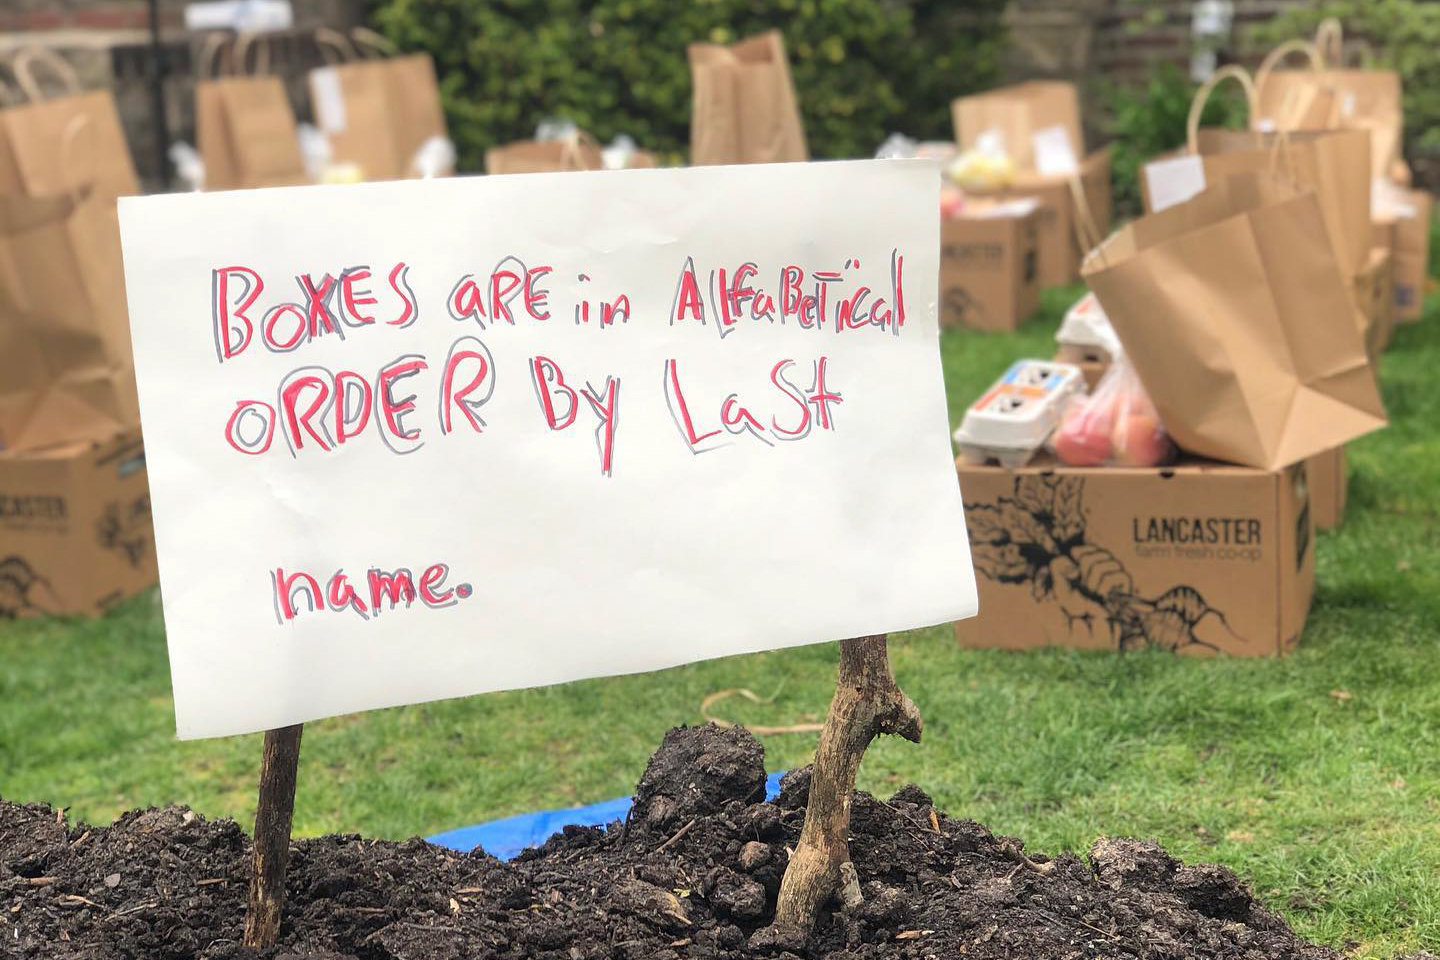 BOXES ARE in ALfaBETiCal
ORDER By LaSt
name.
LANCASTER
farm fresh co-op
LANCASTER
LANCASTER